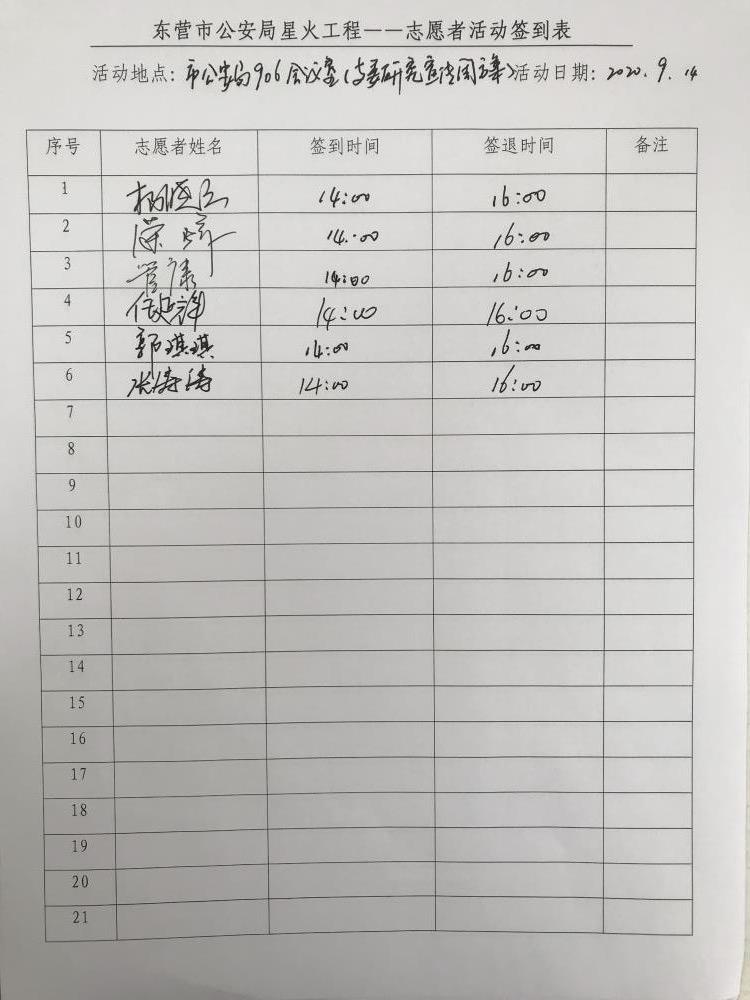 东营市公安局星火工程——志愿者活动签到表
活动地点：市公安局906会议室（支委研究宣传周方案）活动日期：2020.9.14
序号 志愿者姓名 签到时间 签退时间 备注
1 14:00 16:00
2 14:00 16:00
3 14:00 16:00
4 14:00 16:00
5 郭琪琪 14:00 16:00
6 张涛涛 14:00 16:00
7
8
9
10
11
12
13
14
15
16
17
18
19
20
21